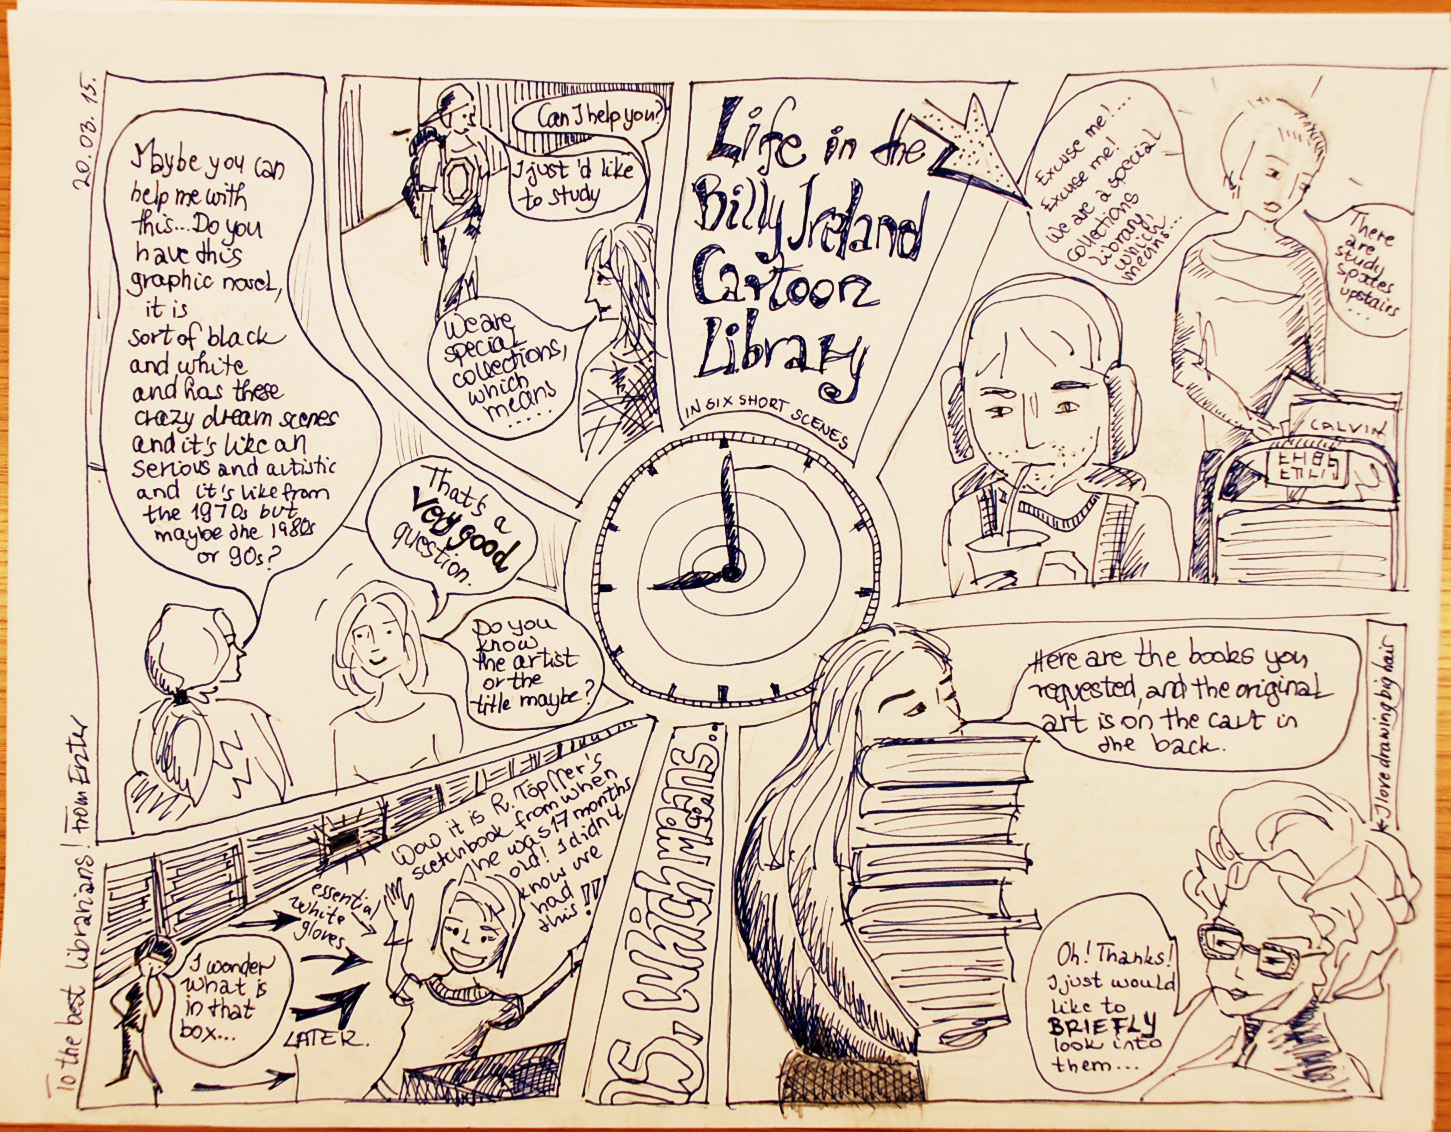 20.03.15.
Life in the
Billy Ireland
Cartoon
Library
IN SIX SHORT SCENES
Maybe you can
help me with
this... Do you
have this
graphic novel,
it is
sort of black
and white
and has these
crazy dream scenes
and it's like an
serious and autistic
and it's like from
the 1970s but
maybe the 1980s
or 90s?
That's a
very good
question.
Do you
know
the artist
or the
title maybe?
Can I help you?
I just'd like
to study
We are
special
collections,
which
means
.....
Excuse me!....
Excuse me!
We are a special
collections
library,
which
means...
There
are
study
spaces
upstairs
...
CALVIN
I wonder
what is
in that
box...
LATER.
essential
white
gloves
Wow it is R. Töpffer's
scetchbook from when
he was 17 months
old! I didn't
know we
had
this!!!
Here are the books you
requested, and the original
art is on the cart in
the back.
Oh! Thanks!
I just would
like to
BRIEFLY
look into
them...
* I love drawing big hair
To the best librarians! from Eszter